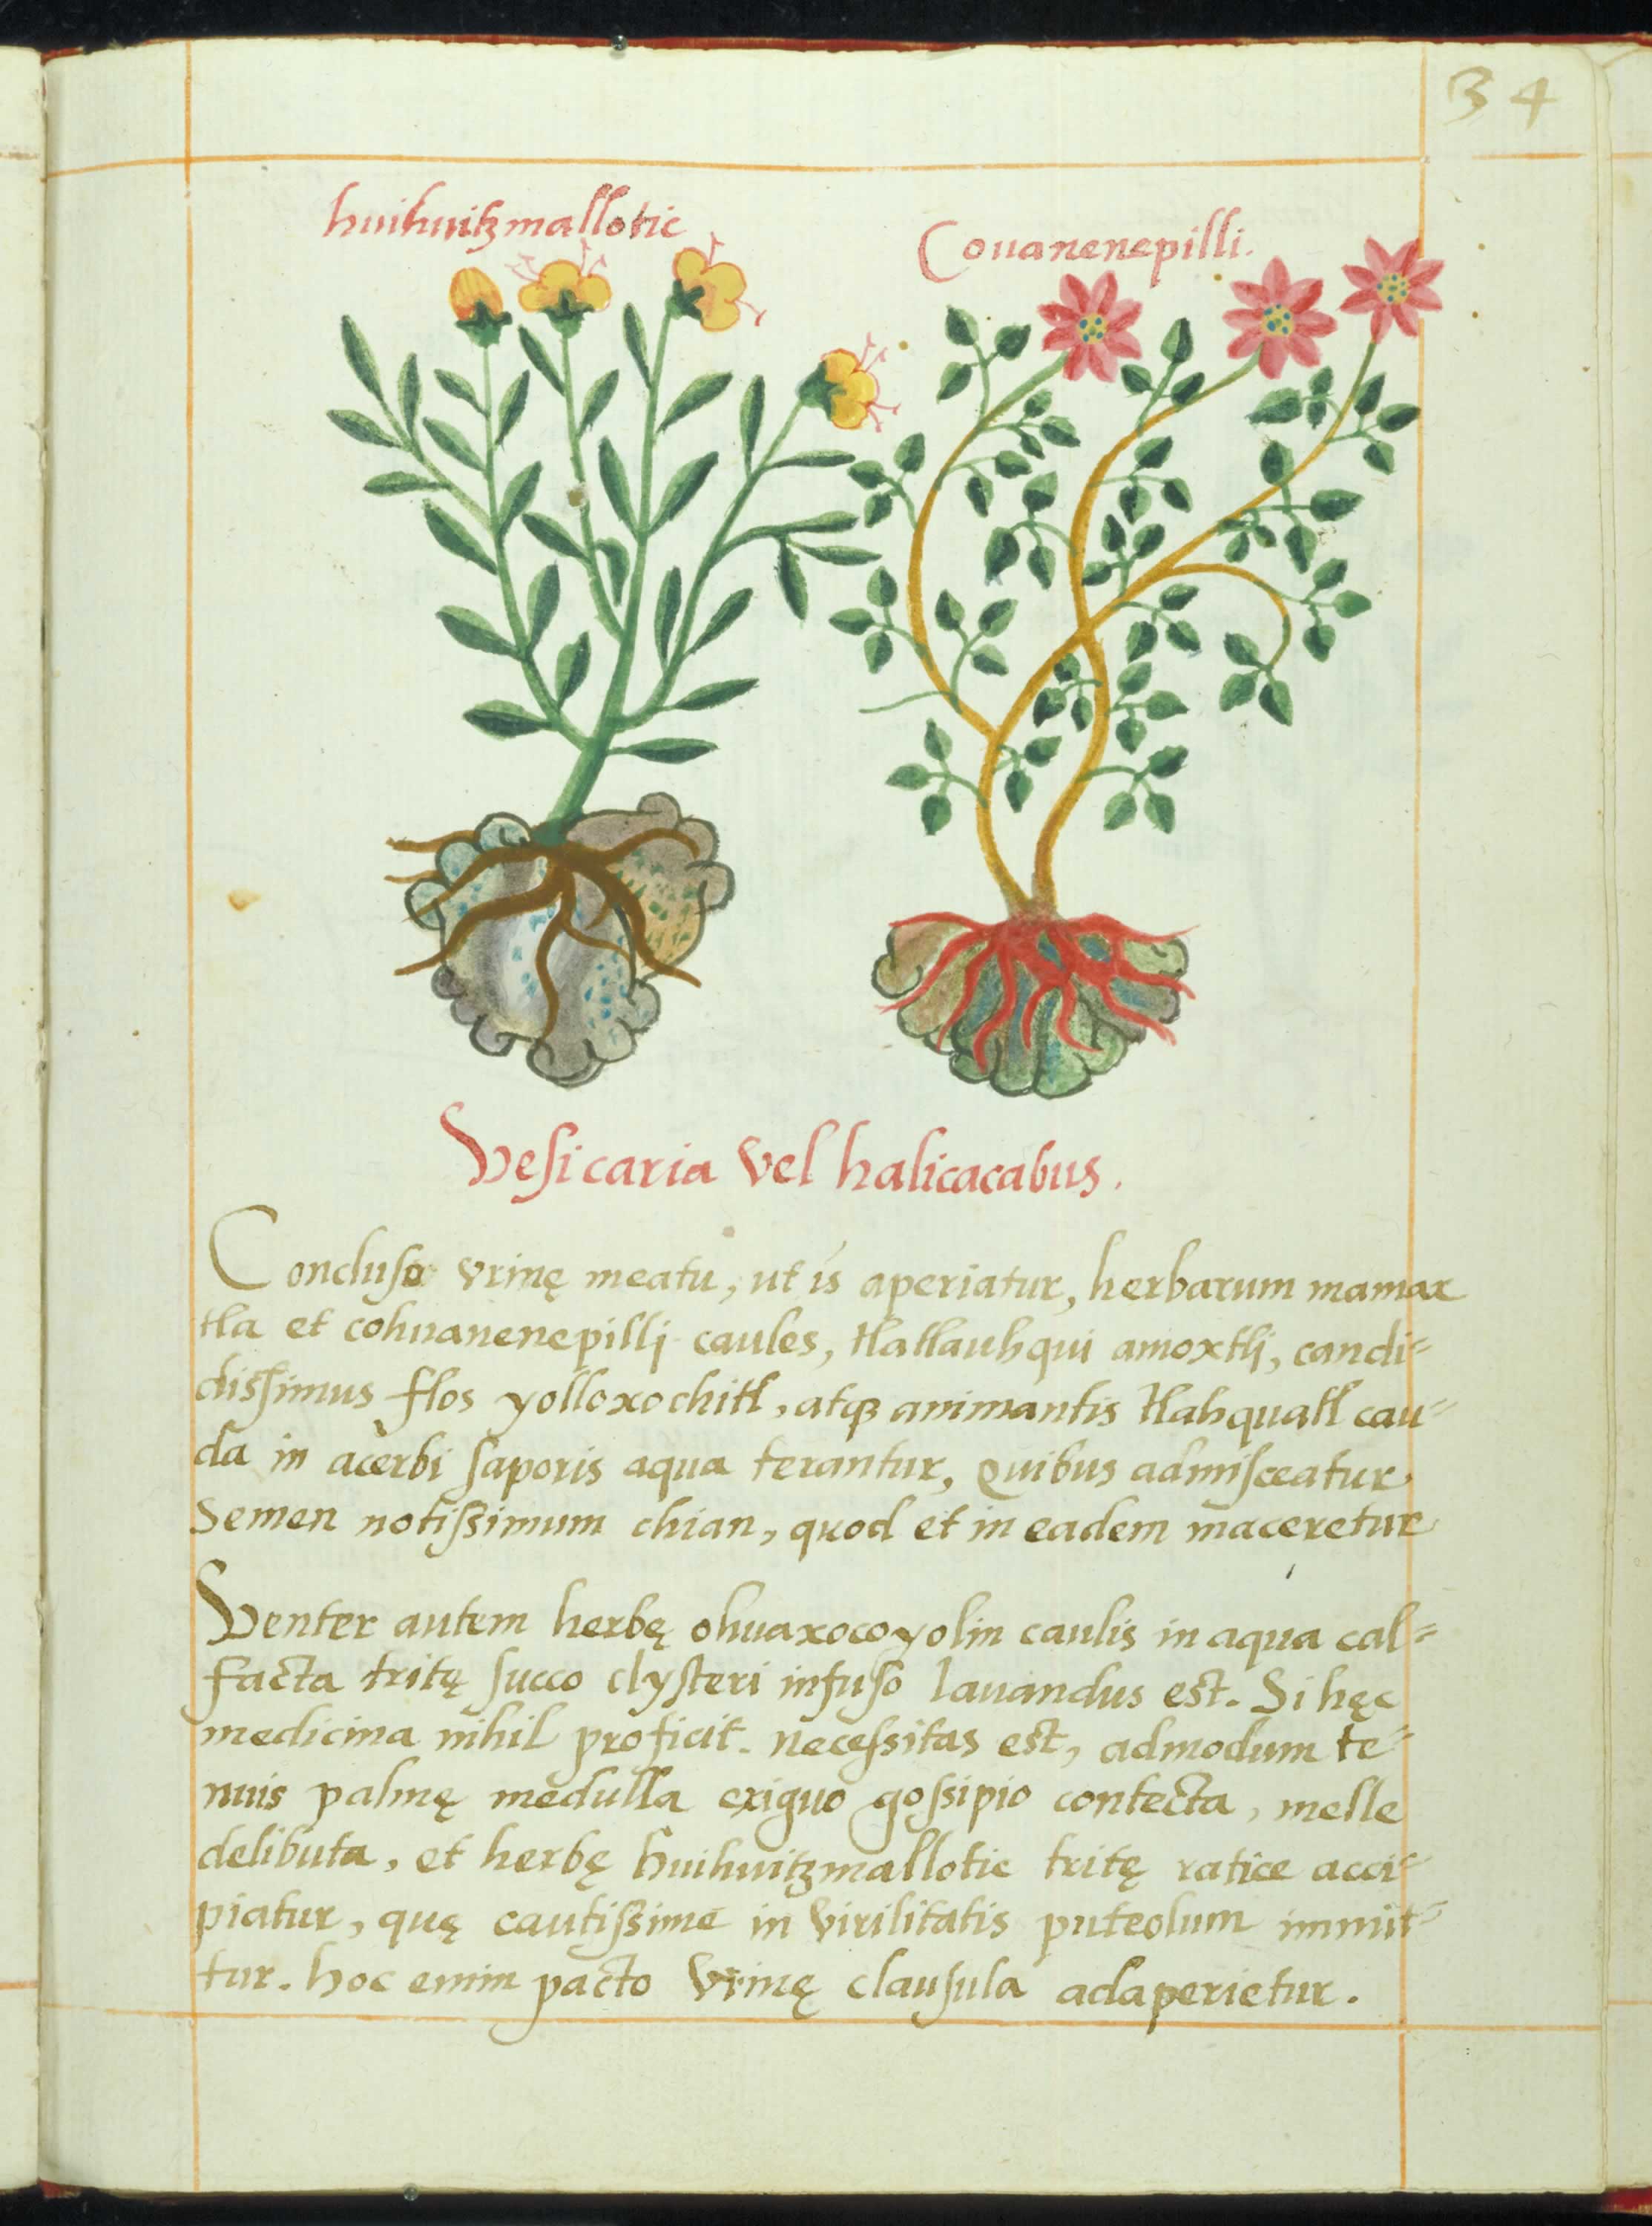 34
huihuitzmallotic
Couanenepilli.
Vesicaria vel halicacabus.
Concluso vrinę meatu, ut is aperiatur, herbarum mamax
tla et cohuanenepillj caules, tlatlauhqui amoxtlj, candi=
dissimus flos yolloxochitl, atqꝫ animantis tlahquatl cau=
da in acerbi saporis aqua terantur, quibus admisceatur
semen notissimum chian, quod et in eadem maceretur
Venter autem herbę ohuaxocoyolin caulis in aqua cal=
facta tritę succo clysteri infuso lauandus est. Si hęc
medicina nihil proficit. necessitas est, admodum te=
nuis palmę medulla exiguo gossipio contecta, melle
delibuta, et herbę huihuitzmallotic tritę ratice acci=
piatur, quę cautissime in virilitatis puteolum immit=
tur. hoc enim pacto vrinę clausula adaperietur.